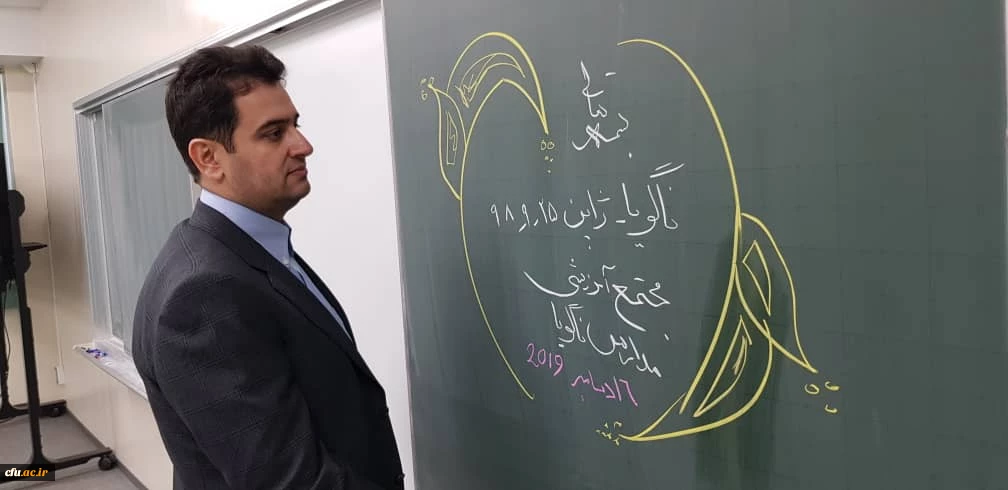 بسمه تعالی
ناگویا - ژاپن ۹۸٫۹٫۲۵
مجتمع آموزشی
مدارس ناگویا
۱۶دسامبر 2019
cfu.ac.ir